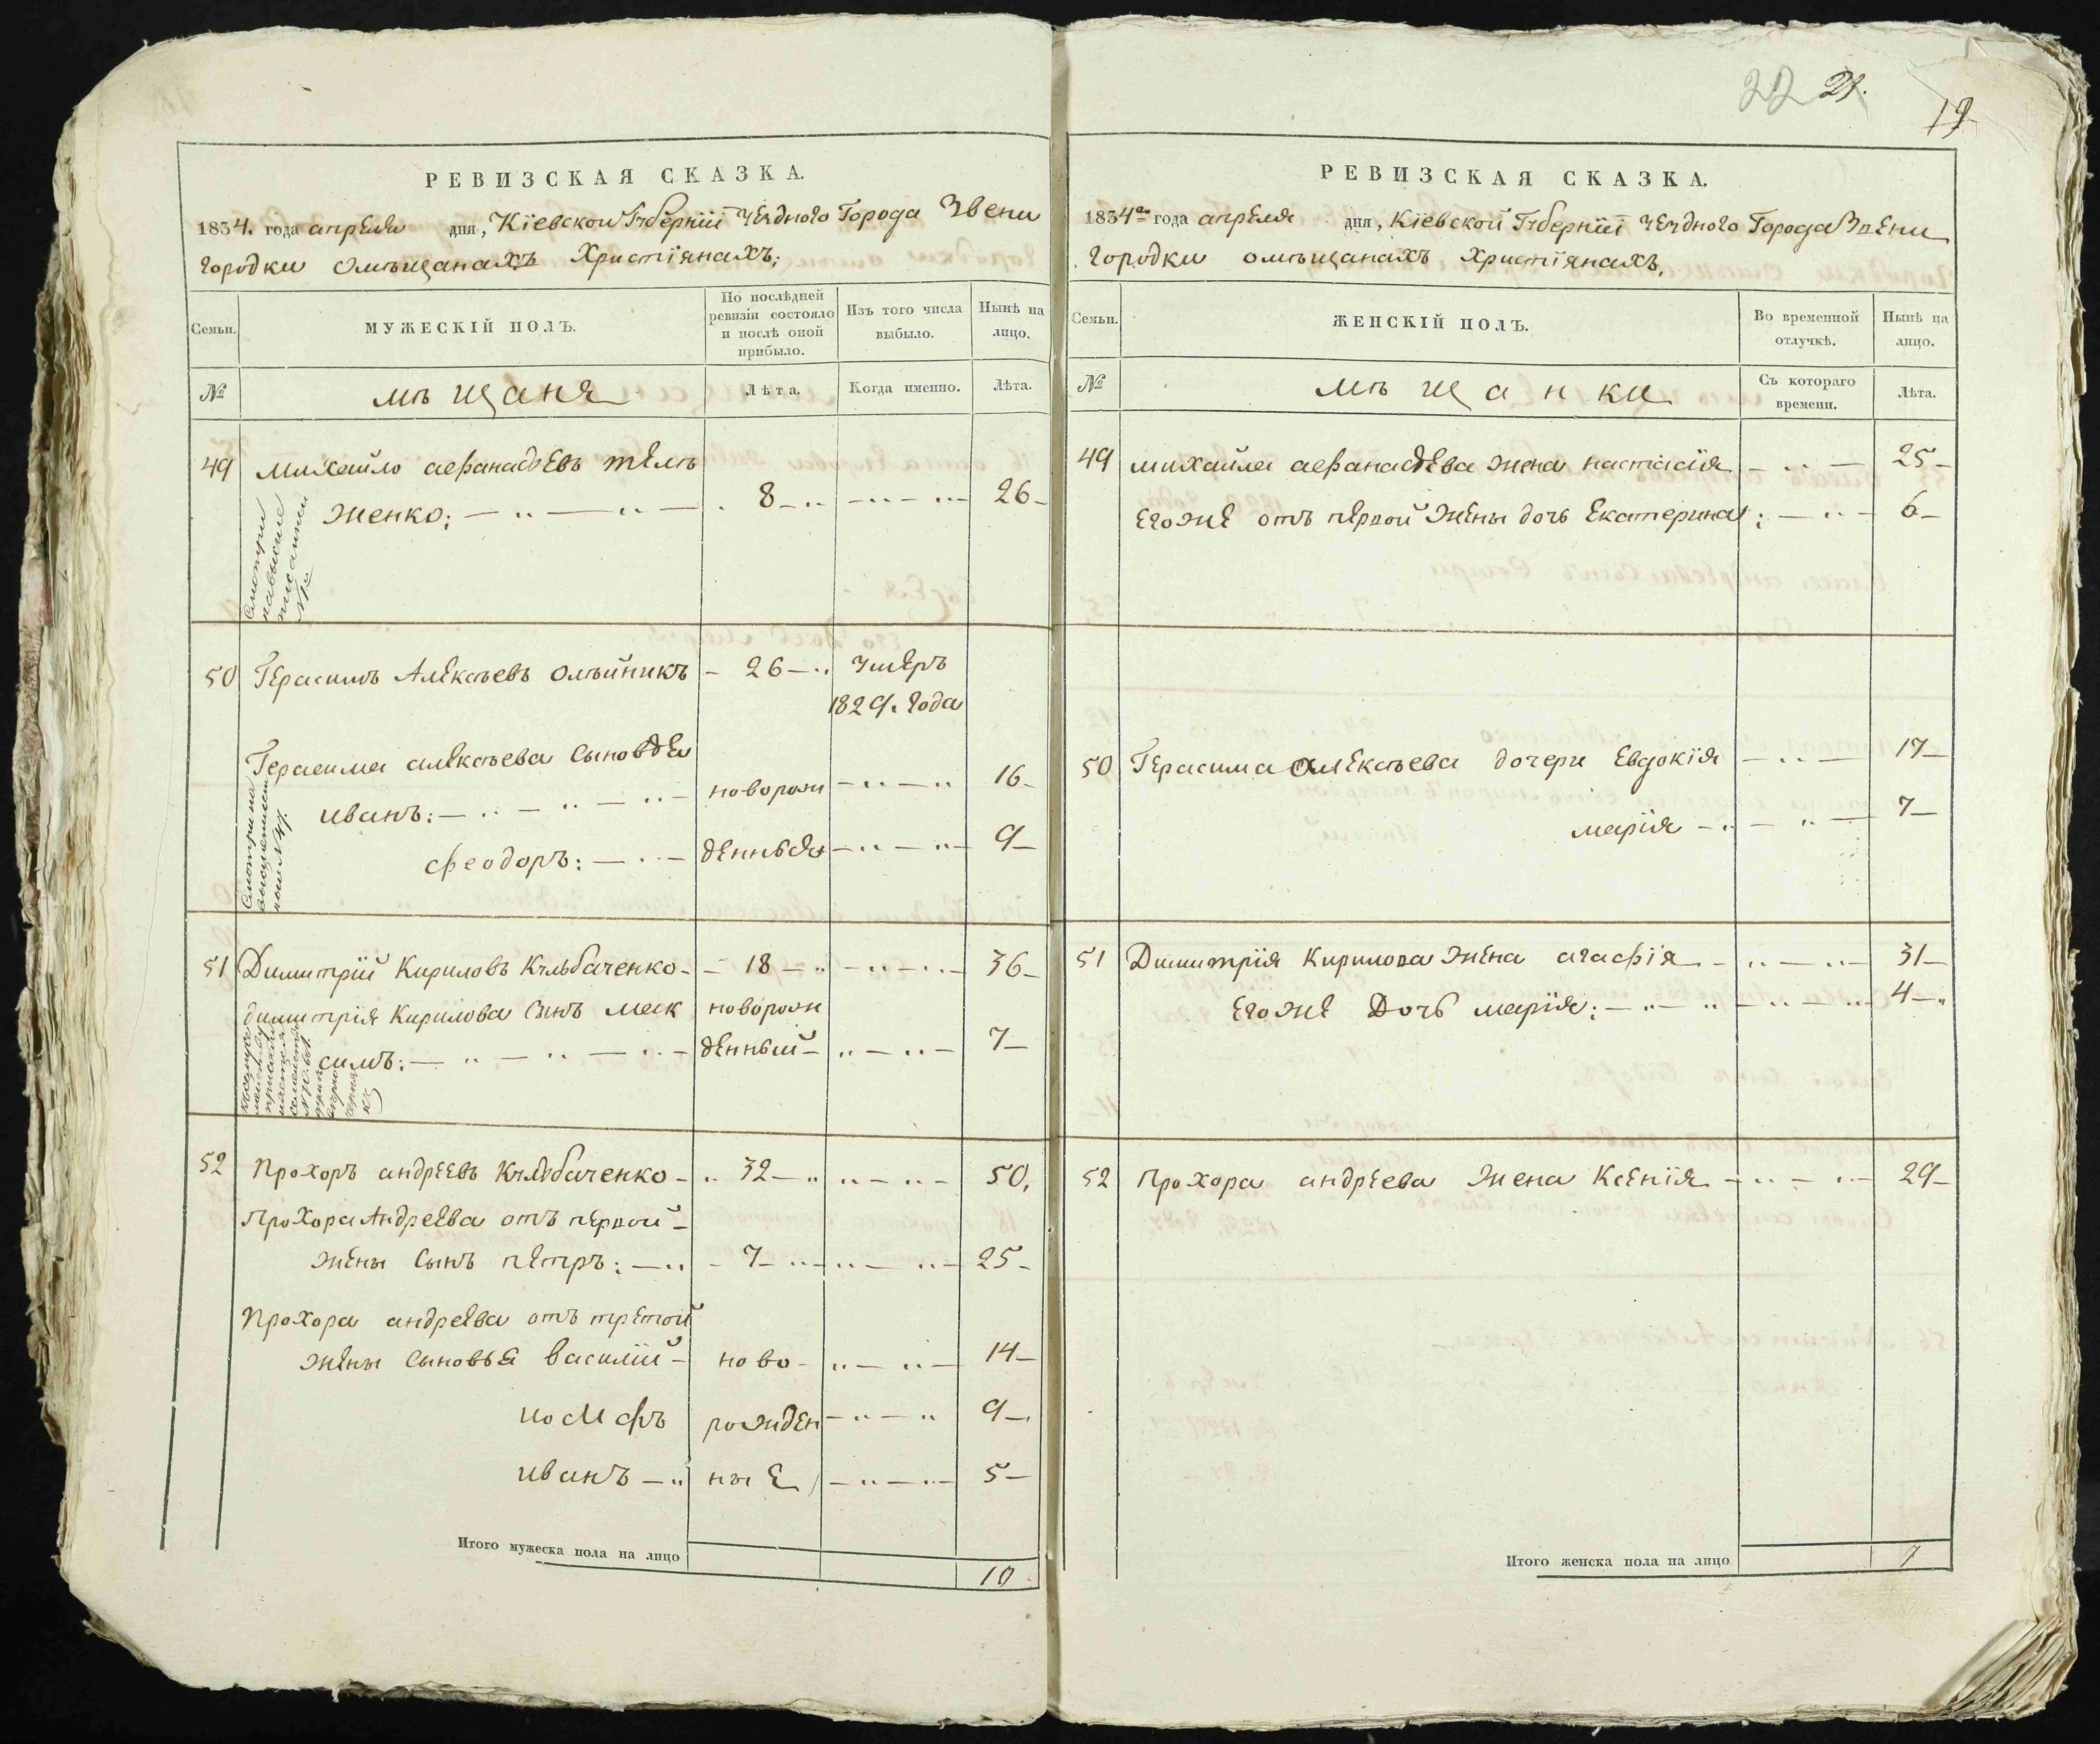 22 21.
19
РЕВИЗСКАЯ СКАЗКА.
1834. года апреля дня, Кіевской Губерніи Уезднаго Города Звени
городки омѣщанахъ Христіянахъ;
Семьи.
МУЖЕСКІЙ ПОЛЪ.
По послѣдней ревизіи состояло и послѣ оной прибыло.
Изъ того числа выбыло.
Нынѣ на лицо.
№
мѣщаня
Лѣта.
Когда именно.
Лѣта.
49 Михайло аефанасьевъ
женко; 8 26
50 Герасимъ Алексѣевъ Олѣйникъ 26 Умеръ
1829. года
Герасима алексѣева сыновья
иванъ: новорож 16
феодоръ: денныя 9
51 Димитрій Кириловъ Кульбаченко 18 36
димитрія Кирилова сынъ мак новорож
симъ: денный 7
52 Прохоръ андреевъ Кульбаченко 32 50.
Прохора Андреева отъ первой
жены сынъ петръ: 7 25
Прохора андреева отъ третой
жены сыновья василій ново 14
иосифъ рожден 9
иванъ ные 5
Итого мужеска пола на лицо 10
РЕВИЗСКАЯ СКАЗКА.
1834го года апреля дня, Кіевской Губерніи Уезднаго Города Звени
городки омѣщанахъ Христіянахъ,
Семьи.
ЖЕНСКІЙ ПОЛЪ.
Во временной отлучкѣ.
Нынѣ на лицо.
№
мѣщанки
Съ котораго времени.
Лѣта.
49 михайла аефанасьева жена настасія 25
егоже отъ первой жены дочь Екатерина: 6
50 Герасима алексѣева дочери Евдокія 17
марія 7
51 Димитрія Кирилова жена агафія 31
Егоже Дочь марія: 4
52 Прохора андреева жена Ксенія 29
Итого женска пола на лицо 7